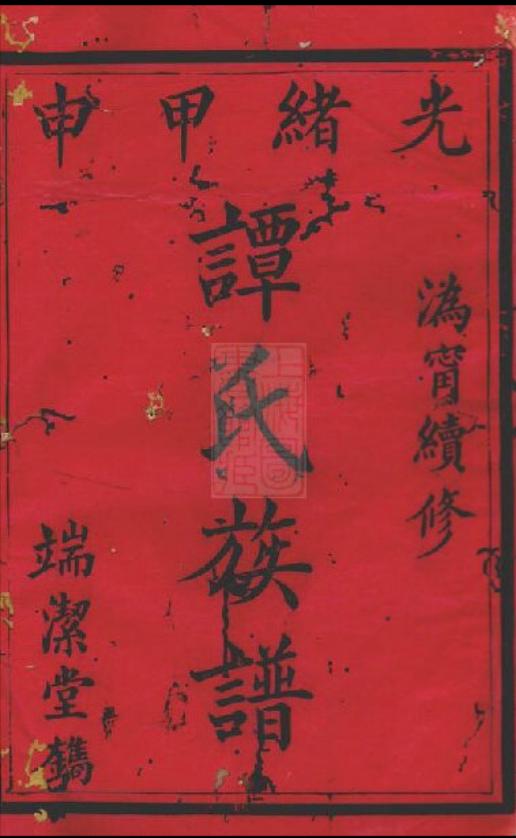 光緒甲申
溈甯續修
譚氏族譜
端潔堂鐫